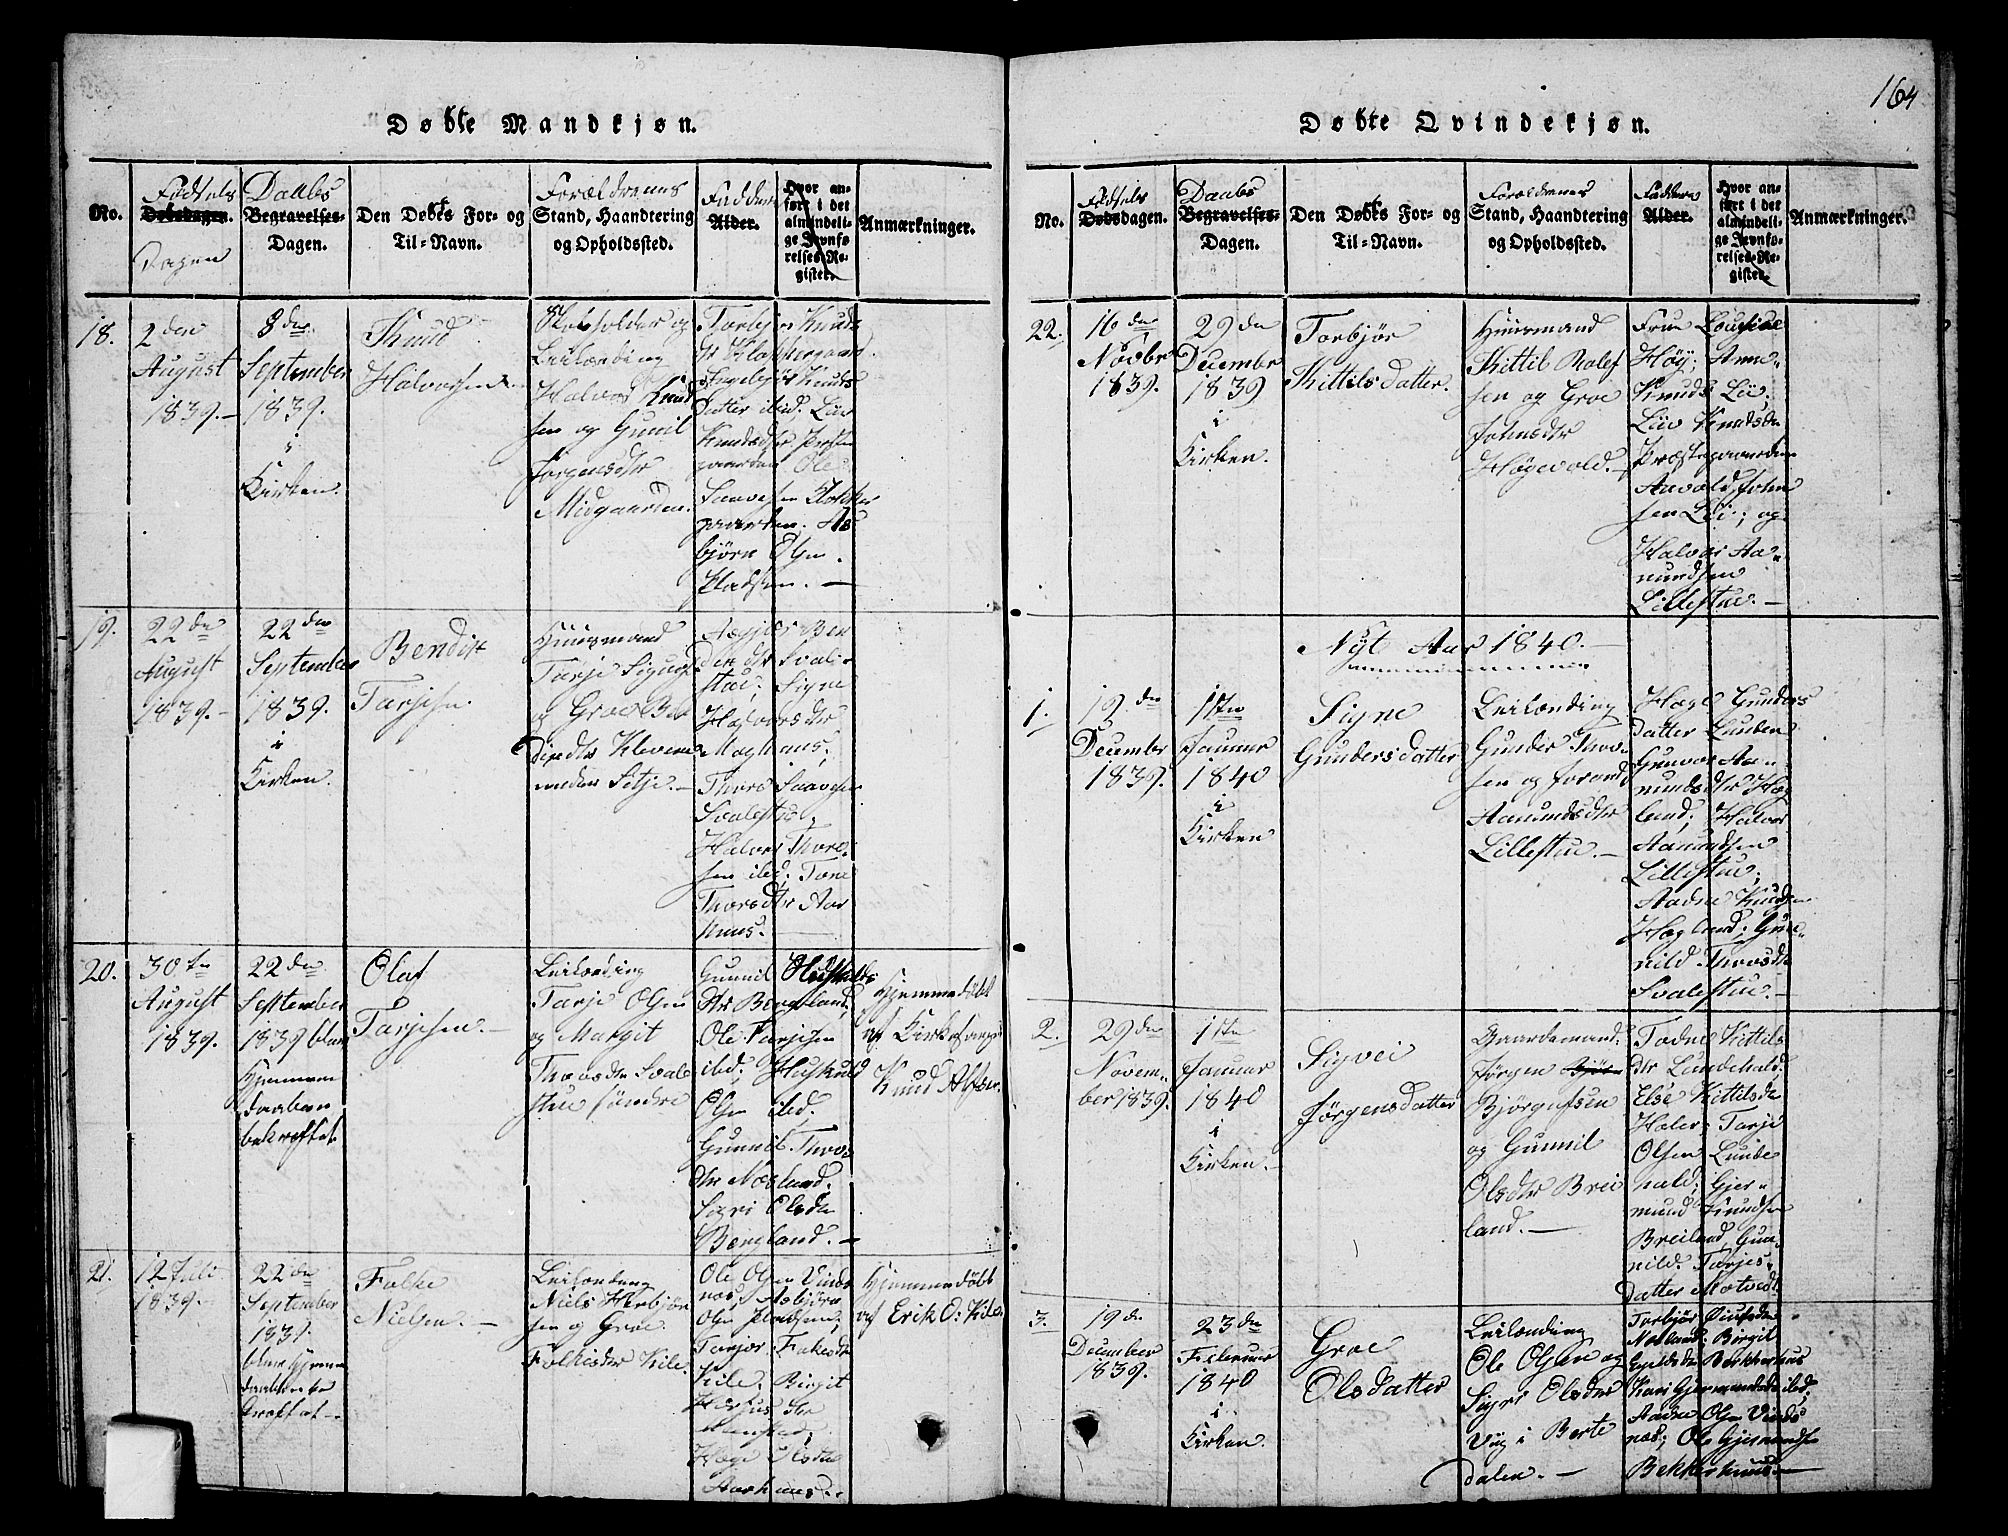 Døbte Mandkjøn.
No.
Fødsels
Dødsdagen.
Dagen
Daabs
Begravelses-
Dagen.
Den Døbtes For- og
Til-Navn.
Forældrenes
Stand, Haandtering
og Opholdssted.
Faddere
Alder.
Hvor an-
ført i det
almindeli-
ge Jevnfø-
relses-Re-
gister.
Anmærkninger.
18.
2den
August
1839.
8de
September
1839.
i
Kirken.
Knud
Halvorsen
Skoleholder og
Leilænding
Halvor Knud
sen og Gunil
Jørgensdtr
Midgaarden.
Torbjør Knuds
dtr Klokkergaar.
Ingebjør Knuds
datter ibid. Liv
Knudsdtr Præste
gaarden Ole
Saavesen Klokker
gaarden. As
bjørn Olsen
Pladsen.
19.
22de
August
1839.
22de
September
1839.
i
Kirken.
Bendix
Tarjesen
Huusmand
Tarje Sigurds
og Groe Ben
dixdtr Kleven
under Sitje.
Aasne Ben
dixdtr Svale-
stue; Signe
Halvorsdtr
Moghuus;
Thore Saavesen
Svalestue,
Halvor Thore-
sen ibid. Tone
Thorsdtr Aar
huus.
20.
30te
August
1839.
22de
September
1839 blev
Hjemme
daaben
bekræftet.
Olaf
Tarjesen.
Leilænding
Tarje Olsen
og Margit
Thorsdtr Svale
stue søndre
Gunnil Olsdtr
dtr Bergland,
Ole Tarjesen
ibid; Huskuld
Olsen ibid.
Gunnil Thors
dtr Næsland.
Sigri Olsdtr
Bergland.
Hjemmedøbt
af Kirkesanger
Knud Alfsen
21.
12 Juli
1839.
22de
September
1839.
blev Hjemme
daaben be
kræftet.
Folke
Nielsen.
Leilænding
Niels Herbjør
sen og Groe
Folkisdtr Kile
Ole Olsen Vinds
næs; Asbjørn
Olsen Pladsen;
Torjor Folkesdtr
Kile. Birgit
Aarhuus.
Hjemmedøbt
af Erik O: Kile.
164
Døbte Qvindekjøn.
No.
Fødsels
Dødsdagen.
Daabs
Begravelses-
Dagen.
Den Døbtes For- og
Til-Navn.
Forældrenes
Stand, Haandtering
og Opholdssted.
Faddere
Alder.
Hvor an-
ført i det
almindeli-
ge Jevnfø-
relses-Re-
gister.
Anmærkninger.
22.
16de
Novbr
1839.
29de
Decembr
1839
i
Kirken.
Torbjør
Kittilsdatter.
Huusmand
Kittil Rolef
sen og Groe
Johnsdtr
Høgevold.
Frue Lovise
Høy; Anne
Knuds Lii;
Liv Knudsdtr
Præstegaarden
Aavold John
sen Lii; og
Halvor Aa-
mundsen
Lillestue.
Nyt Aar 1840.
1.
19de
Decembr
1839.
1ste
Januar
1840
i
Kirken
Signe
Gundersdatter
Leilænding
Gunder Thor
sen og Jorand
Aamundsdtr
Lillestue.
Hæge Gunders
datter Lunden
Gunvor Aa-
mundsdtr Hæg
land; Halvor
Aamundsen
Lillestue;
Aadne Knudsen
Hægland; Gun-
nild Thorsdtr
Svalestue.
2.
29de
Novem-
ber 1839.
1ste
Januar
1840
i
Kirken.
Sigvei
Jørgensdatter
Gaardemand.
Jørgen
Bjørgufsen
og Gunnil
Olsdtr Brei
land.
Tone Kittils
dtr Lundevald.
Else Kittilsdtr
Haler; Tarje
Olsen Lunde
vald; Gjer-
mund Knudsen
Breiland, Gun-
nild Tarjes-
datter Motvedt.
3.
19de
December
1839.
23de
Februar
1840
i
Kirken.
Groe
Olsdatter
Leilænding
Ole Olsen og
Sigri Olsdtr
Viig i Berte
dalen.
Torbjør Eivindsdtr
Næsland. Birgit
Egildsdtr Bekkerhuus
Kari Gjermundsdtr ibid.
Aadne Olsen Vinds
næs; Ole Gjermunds
Bekkerhuus